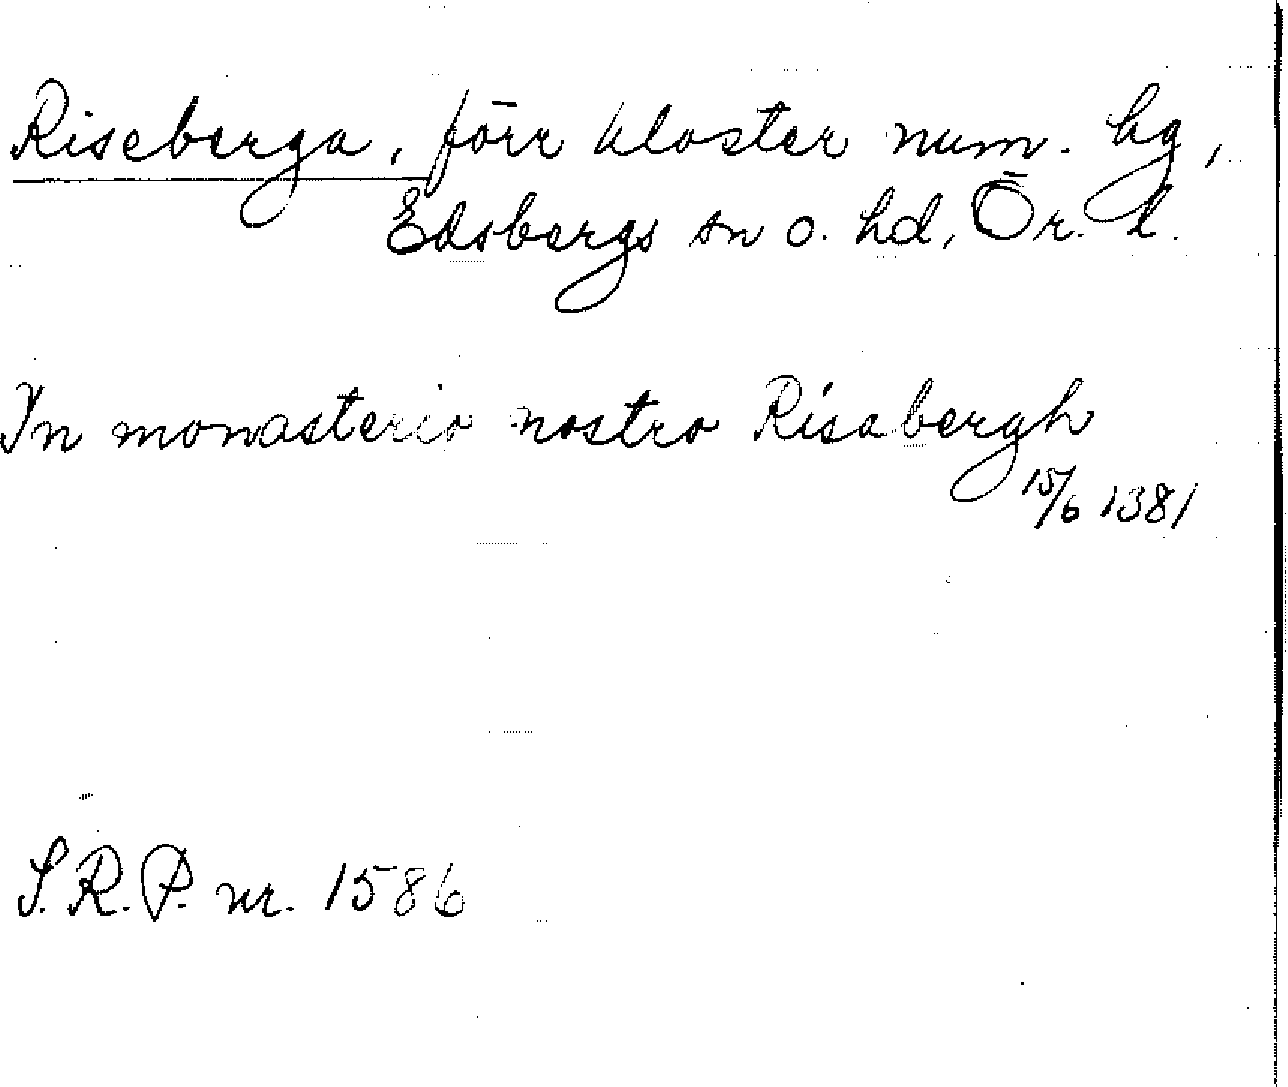 Riseberga, förr kloster num. hg,
Edsbergs sn o. hd, Ör. l.
In monasterio nostro Risabergh
15/6 1381
S.R.P. nr. 1586